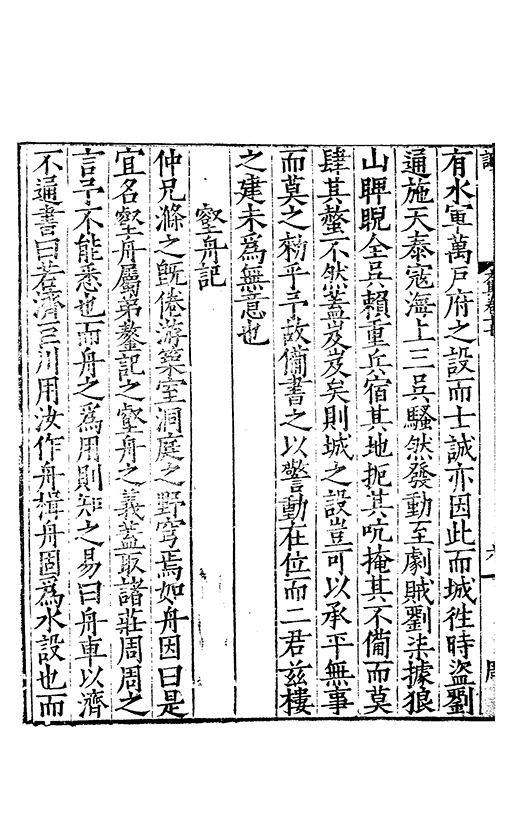 有水軍萬戶府之設而士誠亦因此而城徃時盜劉
通施天泰寇海上三吳騷然發動至劇賊劉柒據狼
山睥睨全吳賴重兵宿其地扼其吭掩其不備而莫
肆其螫不然蓋岌岌矣則城之設豈可以承平無事
而莫之勑乎予故備書之以警動在位而二君茲樓
之建未為無意也
壑舟記
仲兄滌之旣倦游築室洞庭之野穹焉如舟因曰是
宜名壑舟屬弟鏊記之壑舟之義蓋取諸莊周周之
言予不能悉也而舟之為用則知之易曰舟車以濟
不通書曰若濟巨川用汝作舟楫舟固為水設也而